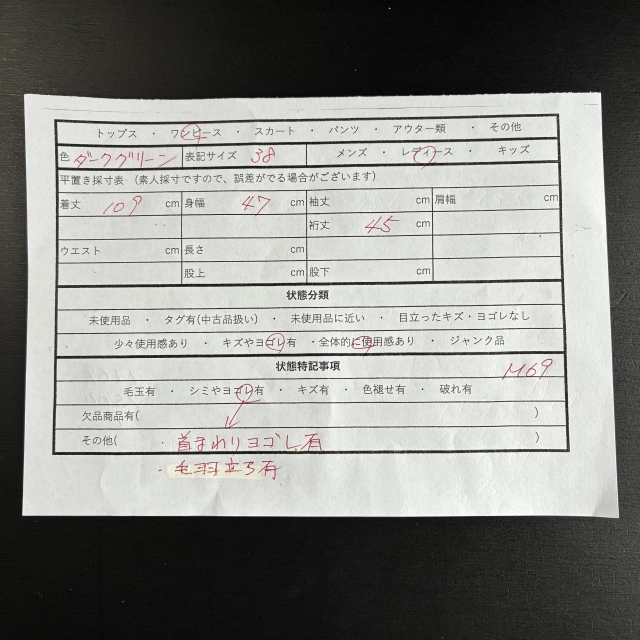 トップス ・ ワンピース ・ スカート ・ パンツ ・ アウター類 ・ その他
色 ダークグリーン 表記サイズ 38 メンズ ・ レディース ・ キッズ
平置き採寸表 （素人採寸ですので、誤差がでる場合がございます）
着丈 109 cm 身幅 47 cm 袖丈 cm 肩幅 cm
裄丈 45 cm
ウエスト cm 長さ cm
股上 cm 股下 cm
状態分類
未使用品 ・ タグ有(中古品扱い) ・ 未使用品に近い ・ 目立ったキズ・ヨゴレなし
少々使用感あり ・ キズやヨゴレ有 ・全体的に使用感あり ・ ジャンク品
状態特記事項
M69
毛玉有 ・ シミやヨゴレ有 ・ キズ有 ・ 色褪せ有 ・ 破れ有
欠品商品有( )
その他( ・首まわりヨゴレ有 )
・毛羽立ち有